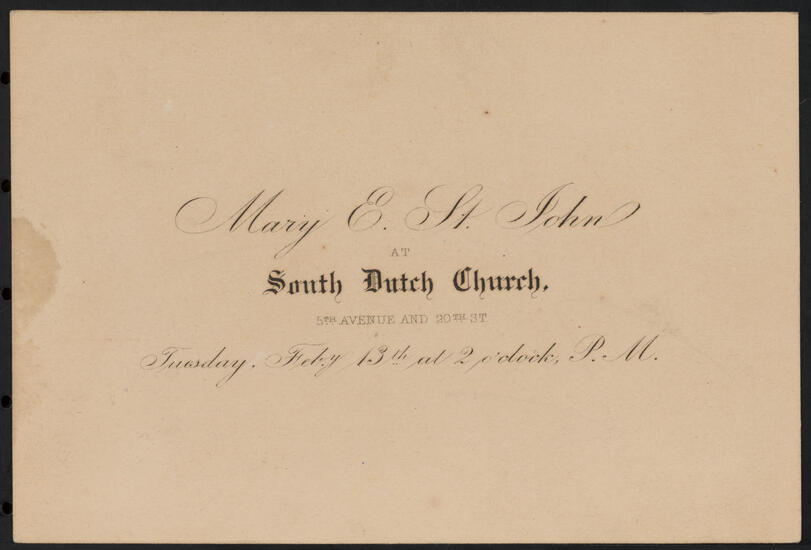 Mary E. St. John
AT
South Dutch Church,
5TH AVENUE AND 20TH ST
Tuesday, Feb.y 13th at 2 o'clock, P. M.